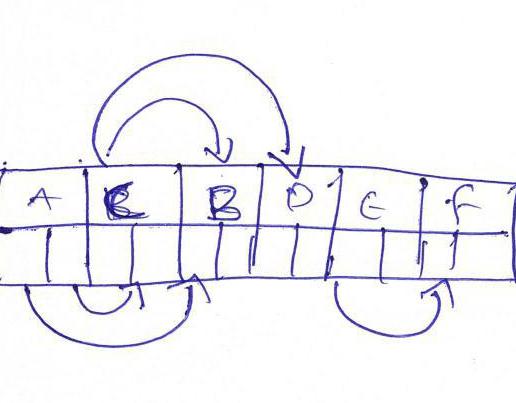 A C B D E F